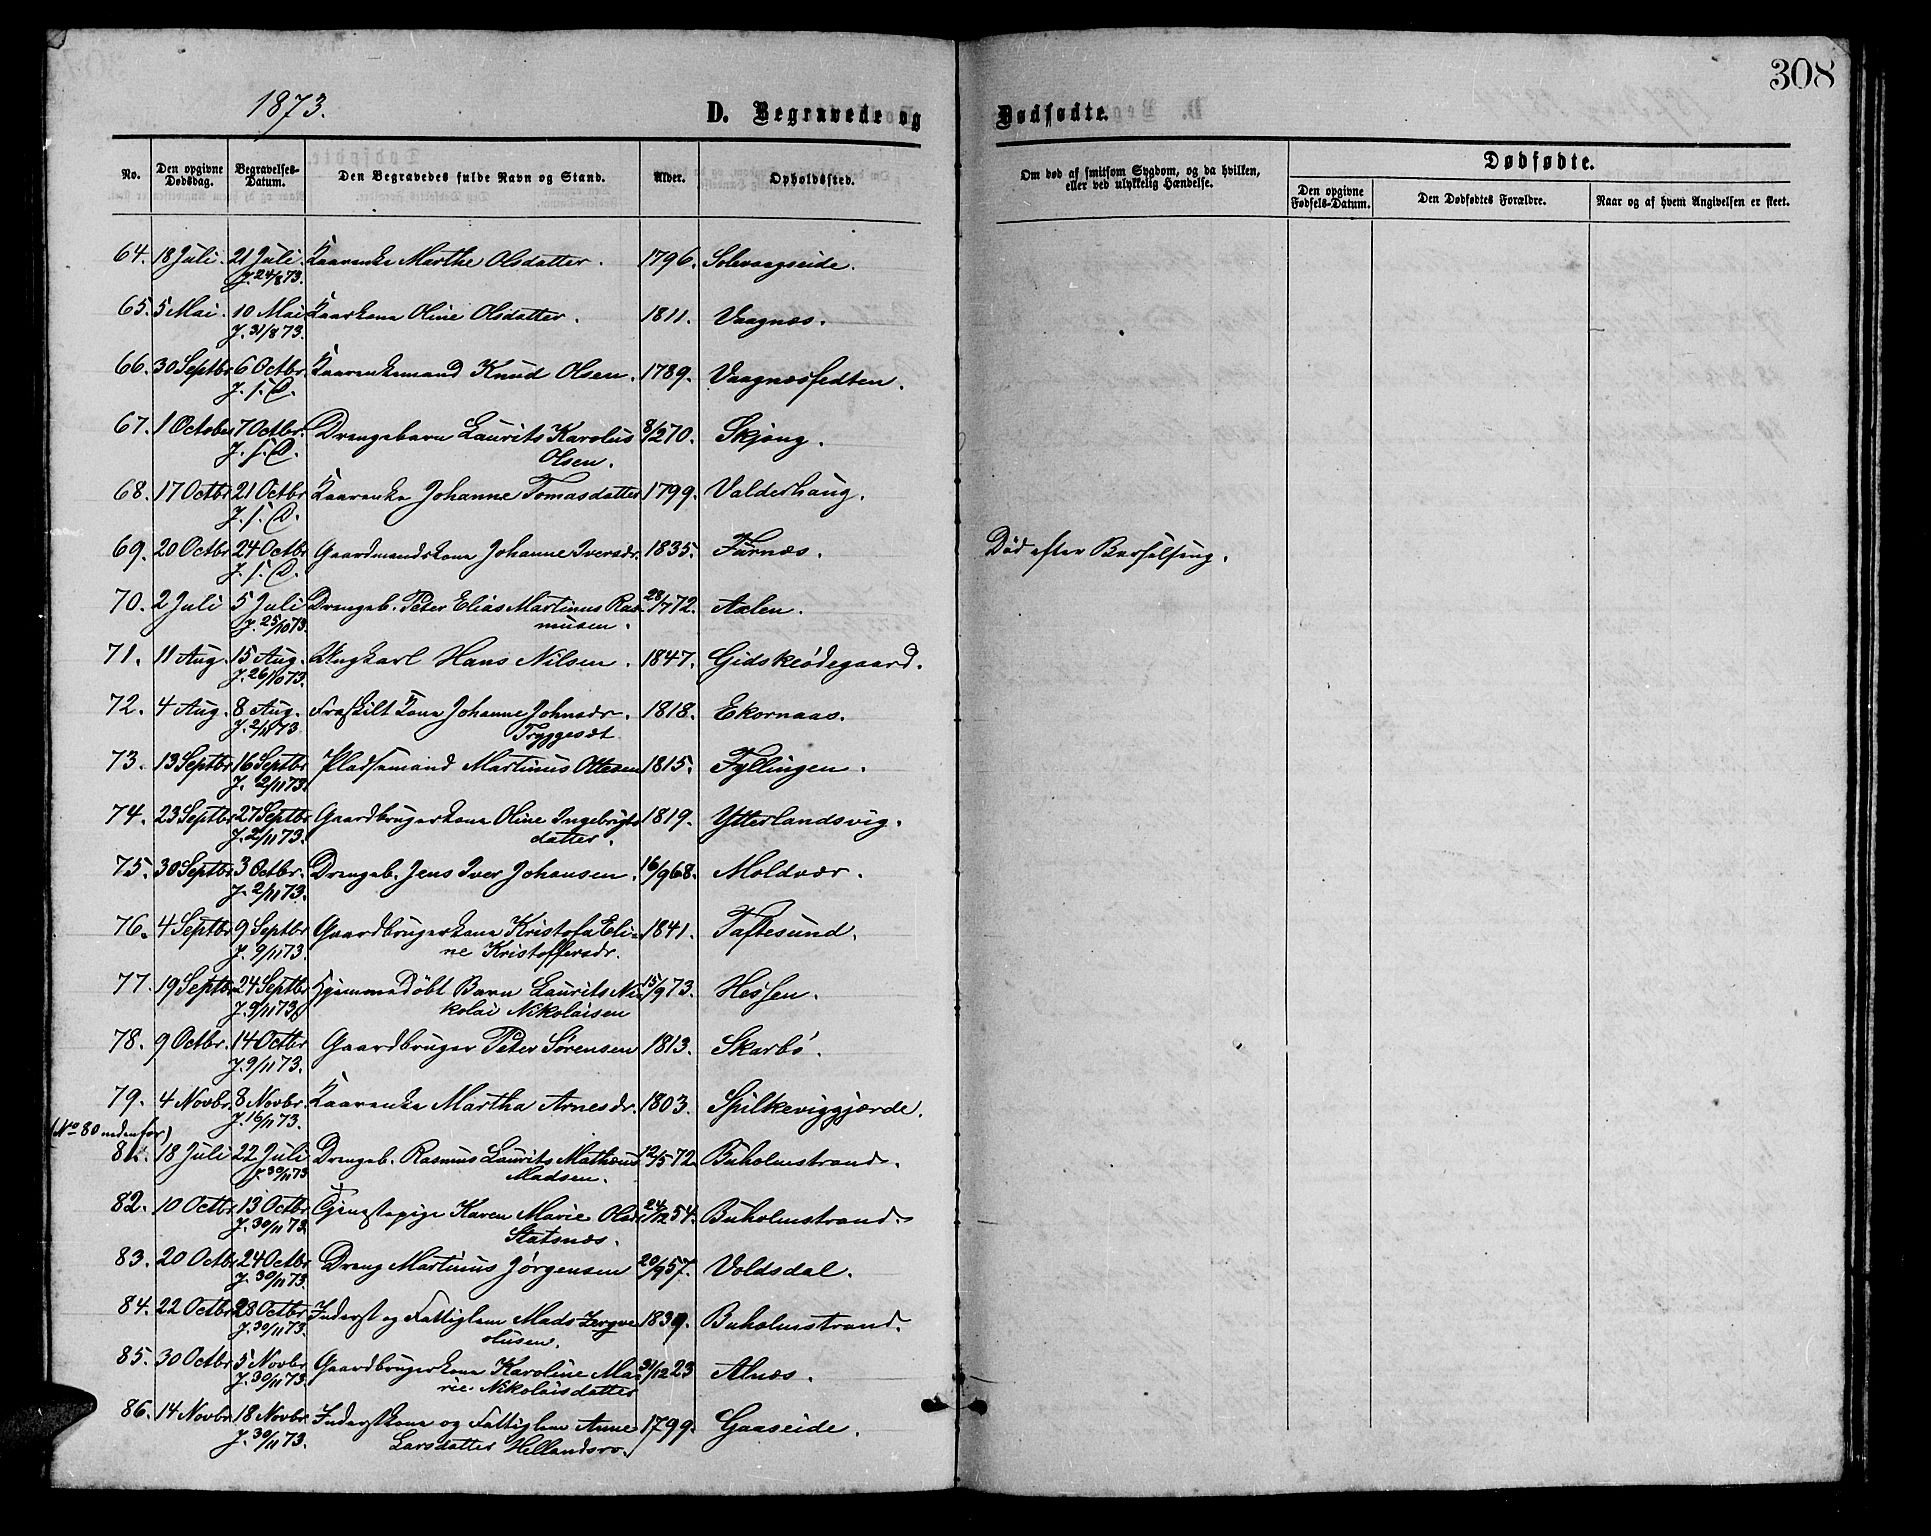 308
1873.
D. Begravede og Dødfødte.
No. Den opgivne Dødsdag. Begravelses-Datum. Den Begravedes fulde Navn og Stand. Alder. Opholdssted. Om død af smitsom Sygdom, og da hvilken, eller ved ulykkelig Hændelse. Dødfødte.
Den opgivne Fødsels-Datum. Den Dødfødtes Forældre. Naar og af hvem Angivelsen er skeet.
64. 18 Juli. 21 Juli. Kaarenke Marthe Olsdatter. 1796. Solevaagseide.
J. 24/8 73.
65. 5 Mai. 10 Mai Kaarkona Oline Olsdatter. 1811. Vaagnæs.
J. 31/8 73.
66. 30 Septbr 6 Octbr. Kaarenkemand Knud Olsen. 1789. Vaagnæsfedten.
J. f. C.
67. 1 October 7 Octbr. Drengebarn Laurits Karolus 8/2 70. Skjong.
J. f. C. Olsen.
68. 17 Octbr 21 Octbr Kaarenke Johanne Tomasdatter 1799. Valderhaug.
J. f. C.
69. 20 Octbr 24 Octbr Gaardmandskona Johanne Iversdr. 1835. Furnæs. Død efter Barselseng.
J. f. C.
70. 2 Juli 5 Juli Drengeb. Peter Elias Martinus Ras- 28/7 72. Axlen.
J. 25/10 73. musen.
71. 11 Aug. 15 Aug. Ungkarl Hans Nilsen. 1847. Gidskeødegaard.
J. 26/10 73.
72. 4 Aug. 8 Aug. Fraskilt Kona Johanne Johnsdr. 1818. Ekornaas.
J. 2/11 73 Tryggesæt
73. 13 Septbr 16 Septbr Pladsemand Martinus Ottesen 1815. Fyllingen.
J. 2/11 73.
74. 23 Septbr 27 Septbr Gaardbrugerkona Oline Ingebrigts 1819. Ytterlandsvig.
J. 2/11 73. datter.
75. 30 Septbr 3 Octbr. Drengeb. Jens Iver Johansen. 16/9 68. Moldvær.
J. 2/11 73.
76. 4 Septbr 9 Septbr Gaardbrugerkona Kristofa Eli- 1841. Taftesund.
J. 9/11 73. ne Kristoffersdr.
77. 19 Septbr 24 Septbr Hjemmedøbt Barn Laurits Ni- 15/9 73. Hessen.
J. 9/11 73. kolai Nikolaisen
78. 9 Octbr. 14 Octbr Gaardbruger Peter Sørensen 1813. Skarbø.
J. 9/11 73.
79. 4 Novbr 8 Novbr. Kaarenke Martha Arnesdr. 1803. Spilkeviggjærde.
J. 16/11 73.
(No 80 nedenfor)
81. 18 Juli 22 Juli Drengeb. Rasmus Laurits Mathæus 12/5 72. Buholmstrand.
J. 30/11 73 Madsen.
82. 10 Octbr. 13 Octbr Tjenestepige Karen Marie Olsdr 24/12 54. Buholmstrand.
J. 30/11 73. Statsnæs.
83. 20 Octbr 24 Octbr Dreng Martinus Jørgensen 20/9 57. Voldsdal.
J. 30/11 73.
84. 22 Octbr 28 Octbr Inderst og Fattiglem Mads 1839. Buholmstrand.
J. 30/11 73. olusen.
85. 30 Octbr 5 Novbr Gaardbrugerkona Karoline Ma- 31/12 23 Alnæs.
J. 30/11 73. rie Nikolaisdatter
86. 14 Novbr. 18 Novbr Inderstkona og Fattiglem Anne 1799. Gaaseide.
J. 30/11 73. Larsdatter Hellandsvo.